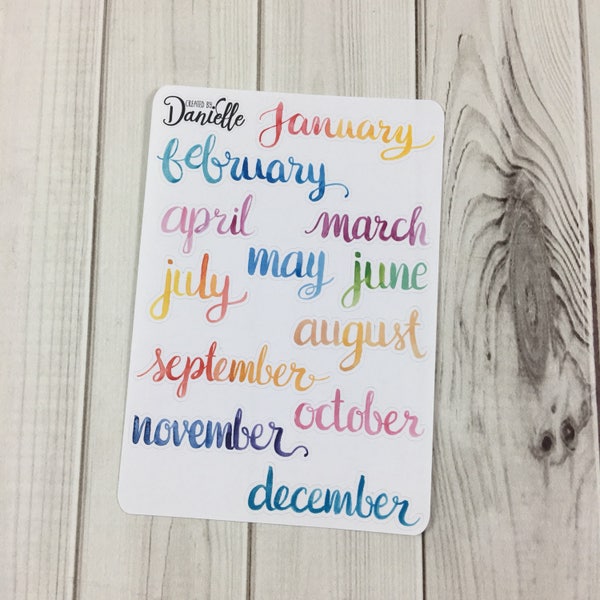 CREATED BY:
Danielle
January
february
april
march
july
may
june
august
september
october
november
december